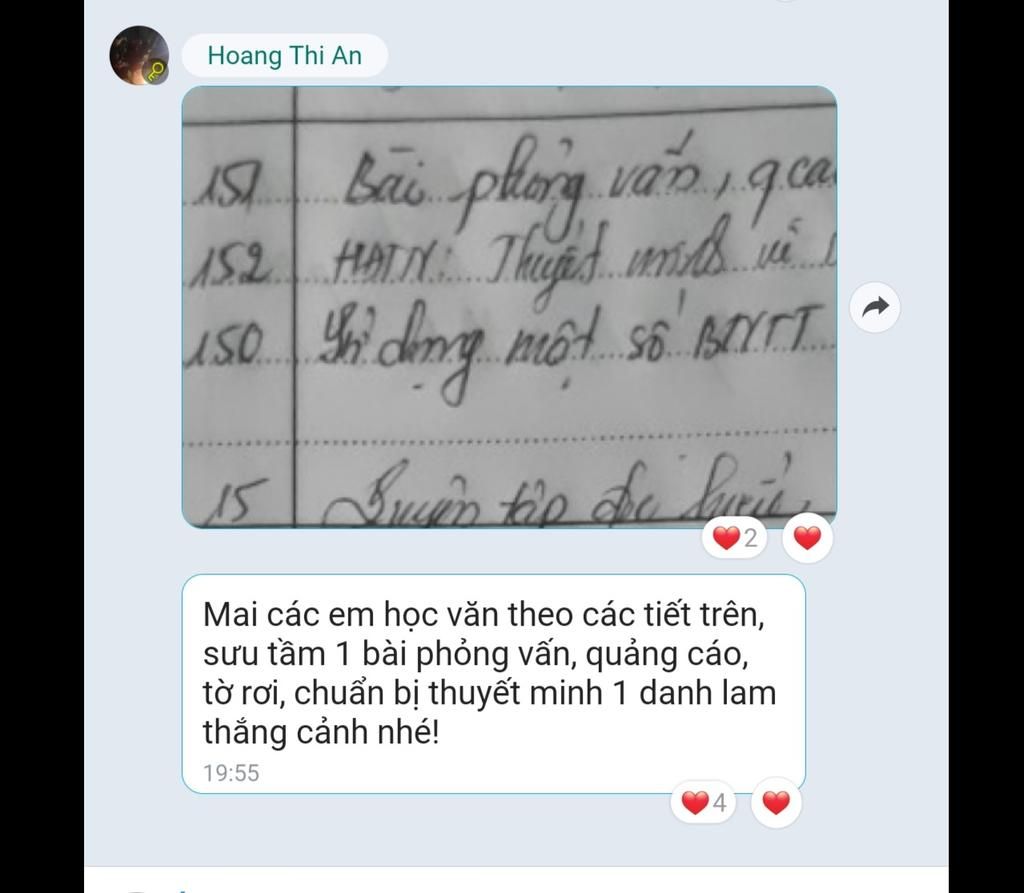 Hoang Thi An
151 Bài phỏng vấn, qcá
152 HĐTN: Thuyết minh về
150 Sử dụng một số BTVTT
15 Luyện tập đọc hiểu
2
Mai các em học văn theo các tiết trên,
sưu tầm 1 bài phỏng vấn, quảng cáo,
tờ rơi, chuẩn bị thuyết minh 1 danh lam
thắng cảnh nhé!
19:55
4